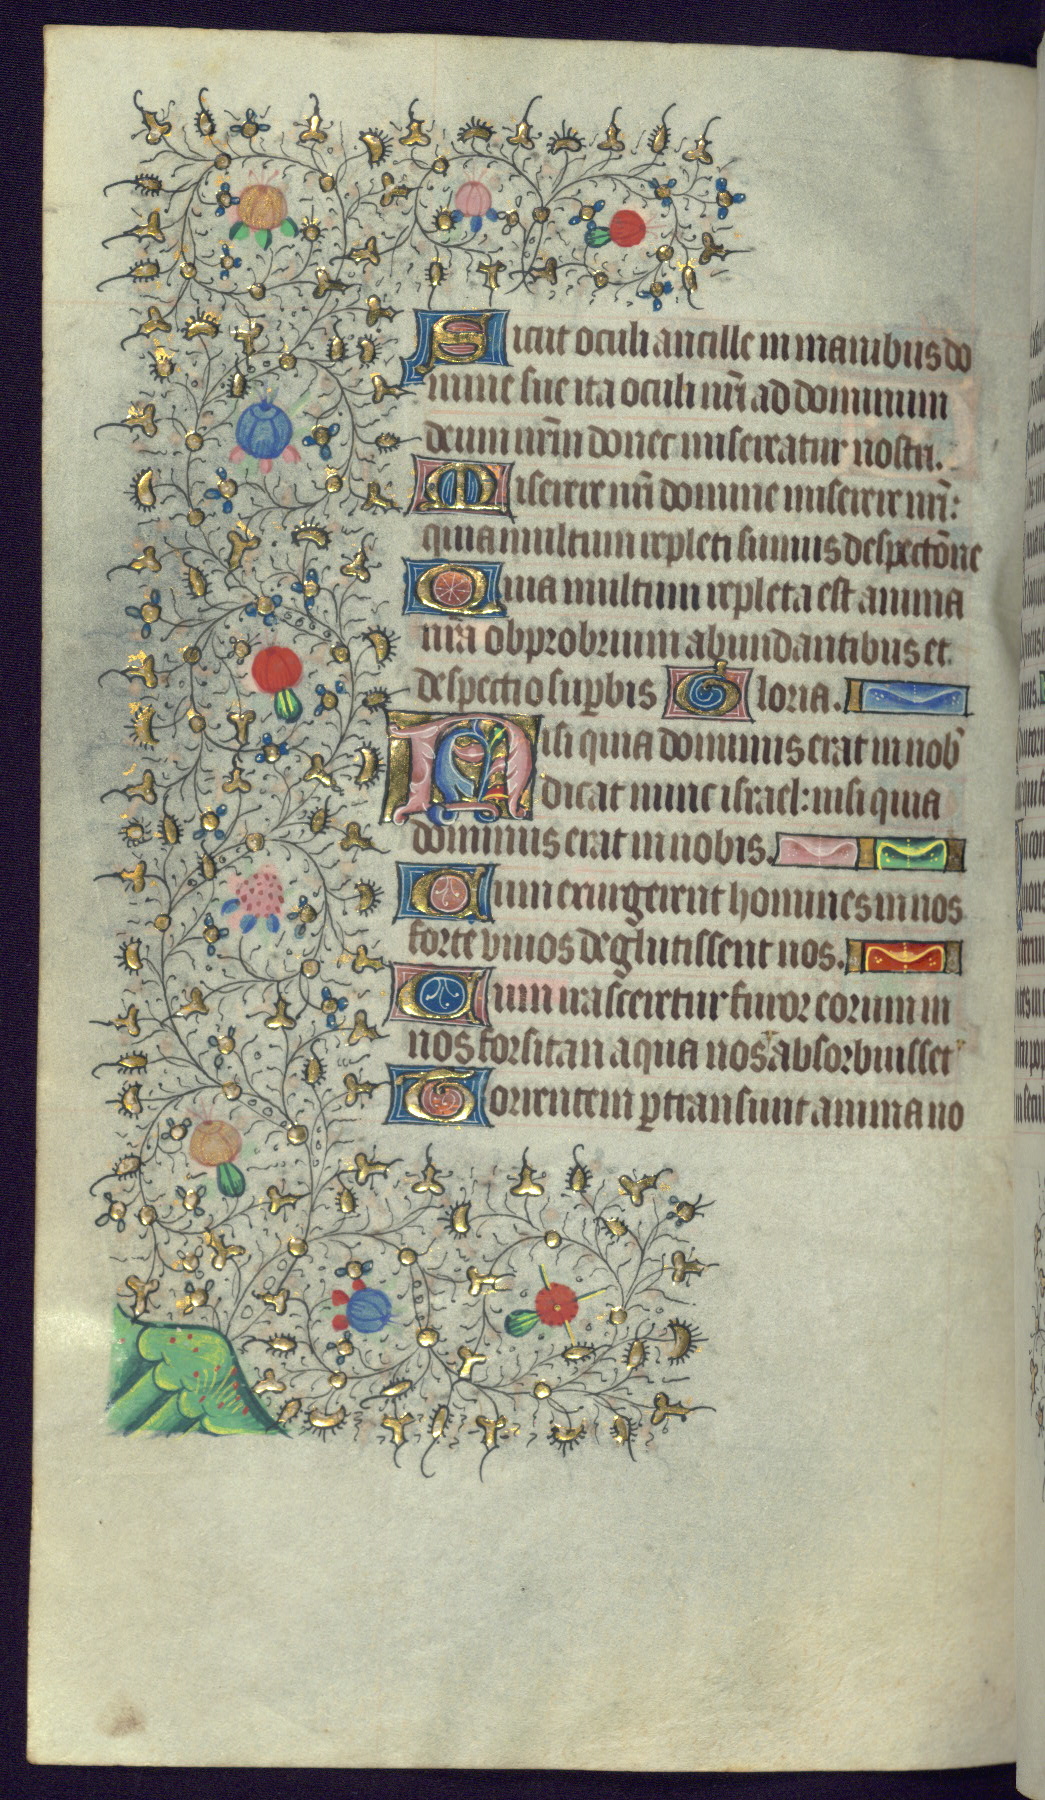 Sicut oculi ancille in manibus do
mine sue ita oculi nr̄i ad dominum
deum nr̄m donec misereatur nostri.
Miserere nr̄i domine miserere nr̄i:
quia multum repleti sumus despectōne
Quia multum repleta est anima
nr̄a obprobrium abundantibus et
despectio suꝑbis Gloria.
Nisi quia dominus erat in nob
dicat nunc israel: nisi quia
dominus erat in nobis.
Cum exurgerent homines in nos
forte vivos deglutissent nos.
Cum irasceretur furor eorum in
nos forsitan aqua nos absorbuisset
Torrentem ꝑtransivit anima no